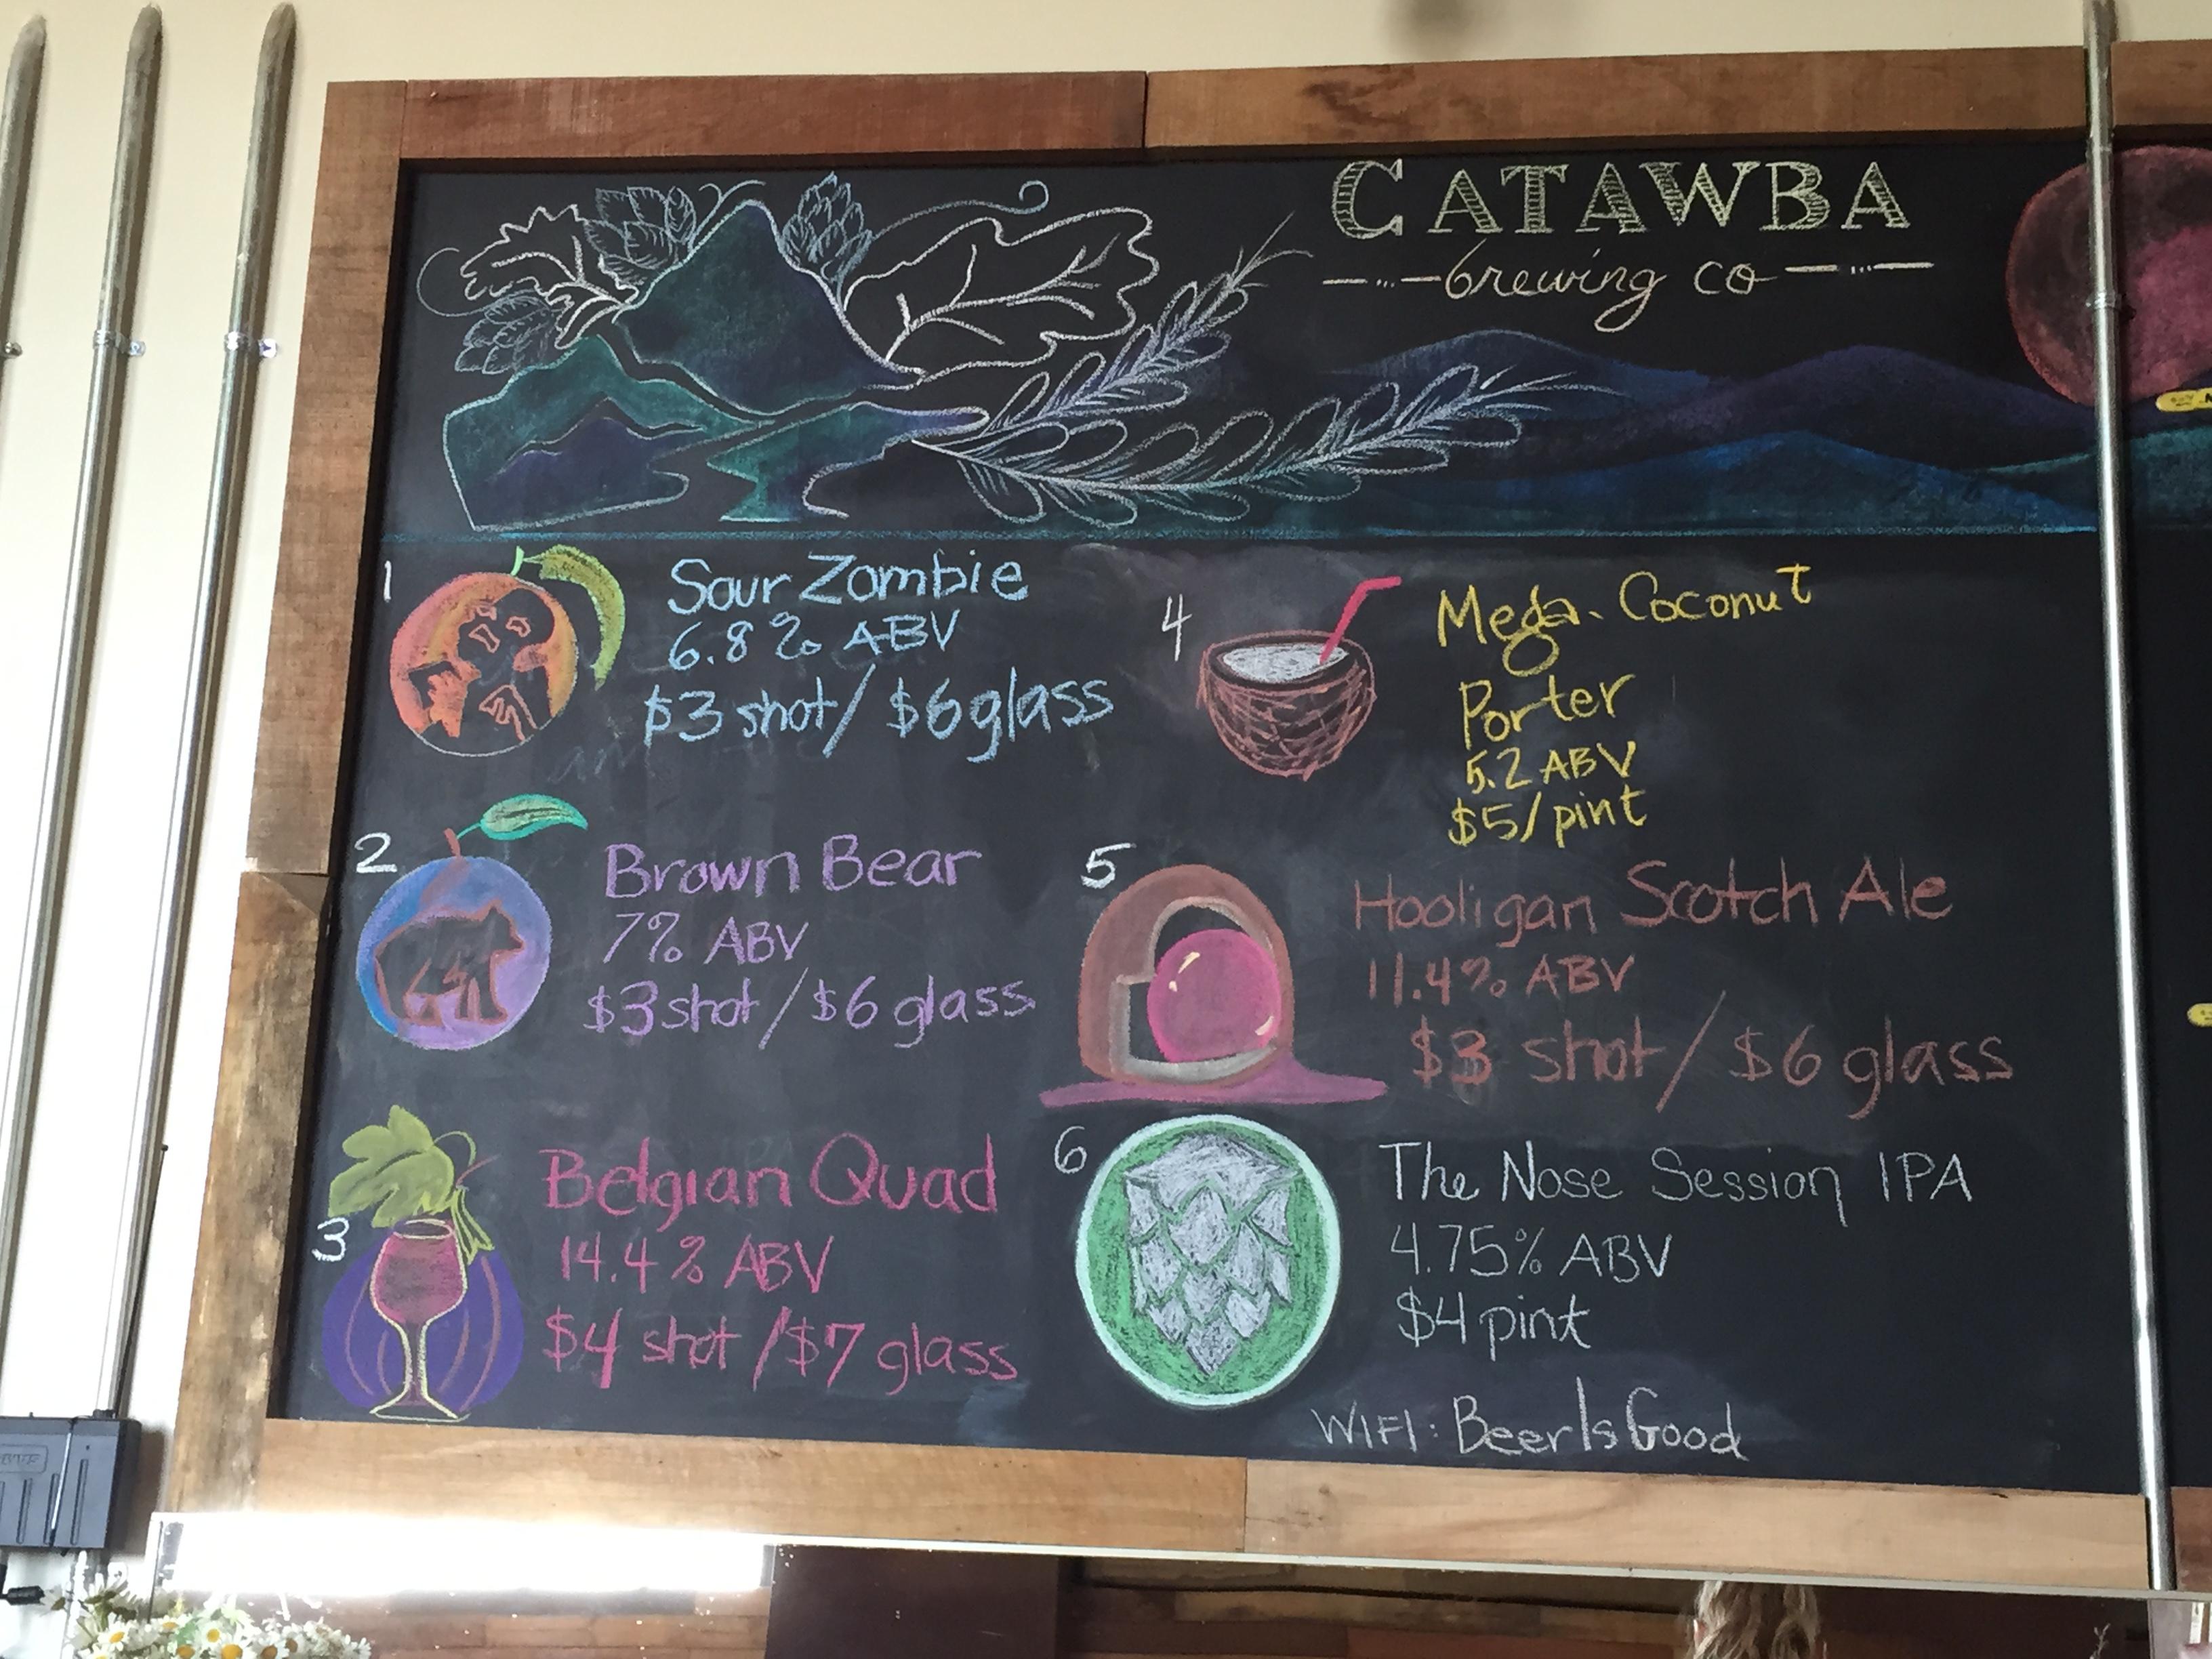 CATAWBA
brewing co
1
Sour Zombie
6.8% ABV
$3 shot/ $6 glass
2
Brown Bear
7% ABV
$3 shot/$6 glass
3
Belgian Quad
14.4% ABV
$4 shot/$7 glass
4
Mega Coconut
Porter
5.2 ABV
$5/pint
5
Hooligan Scotch Ale
11.4% ABV
$3 shot/$6 glass
6
The Nose Session IPA
4.75% ABV
$4 pint
WIFI: BeerIsGood